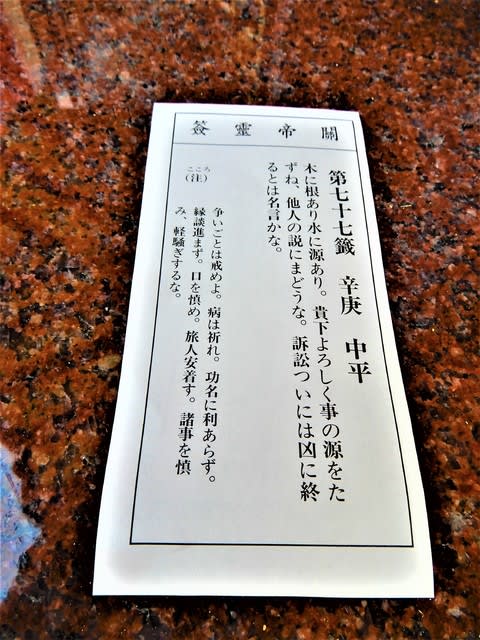 關帝靈簽
第七十七籤 辛庚 中平
木に根あり水に源あり。貴下よろしく事の源をた
ずね、他人の説にまどうな。訴訟ついには凶に終
るとは名言かな。
こころ
(注)
争いごとは戒めよ。病は祈れ。功名に利あらず。
縁談進まず。口を慎め。旅人安着す。諸事を慎
み、軽騒ぎするな。